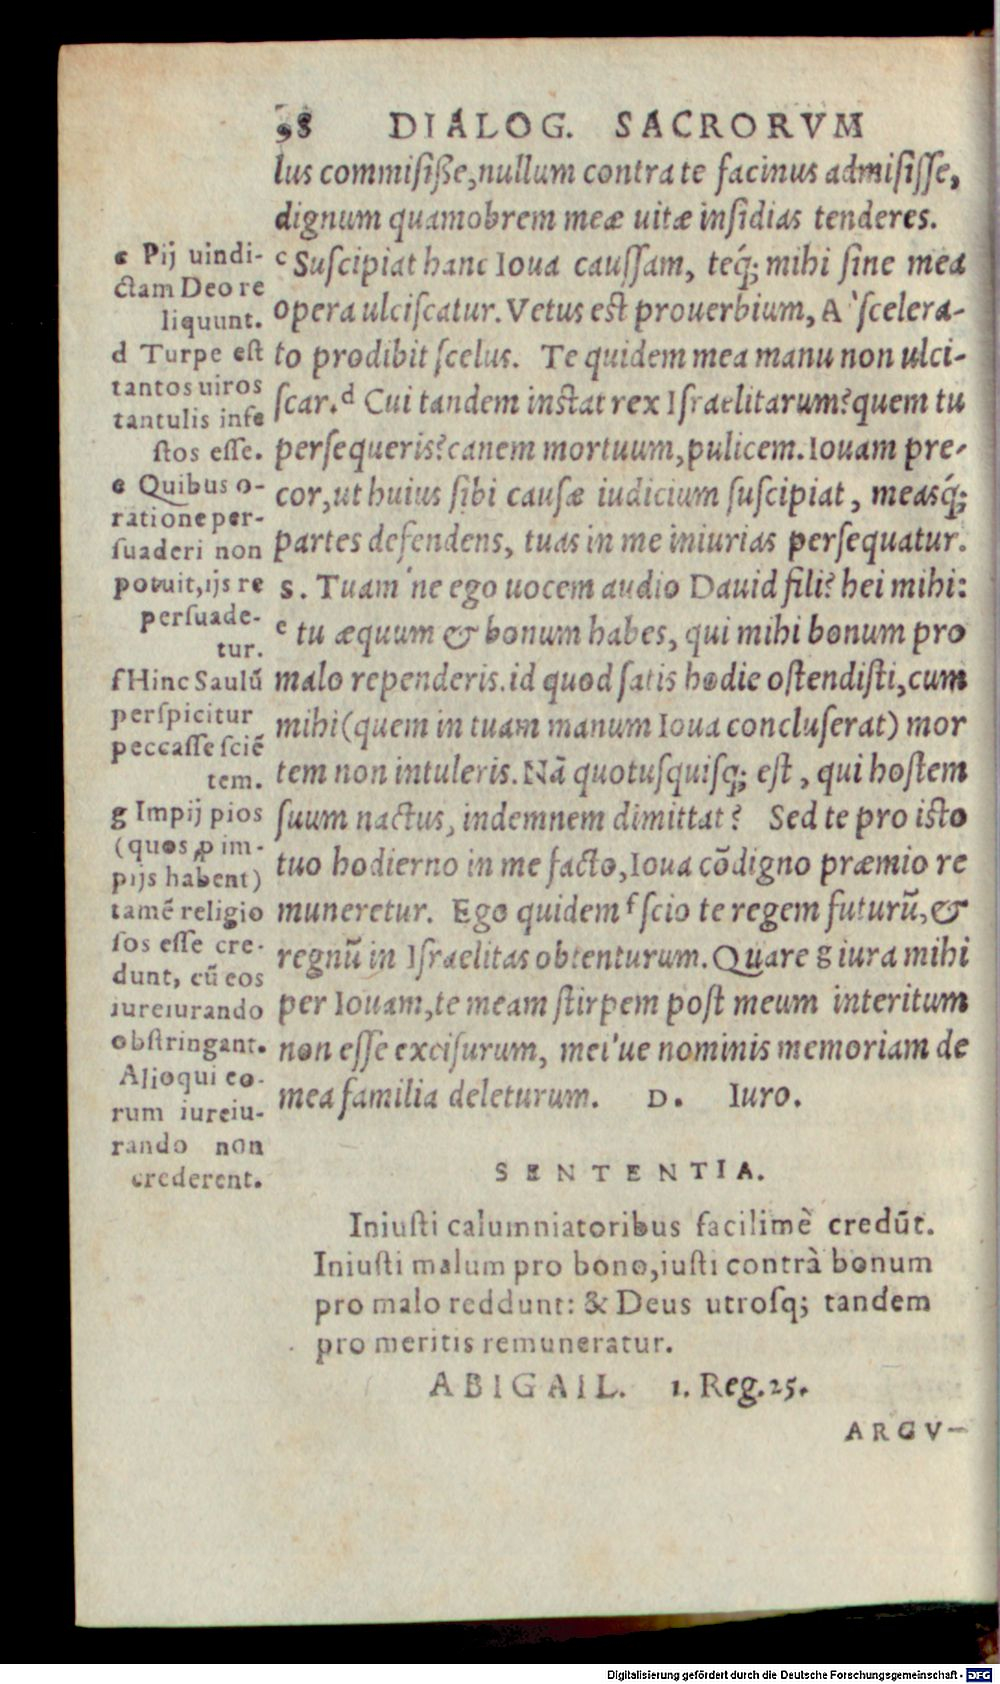 98 DIALOG. SACRORVM
lus commisiße, nullum contra te facinus admisisse,
dignum quamobrem meæ uitæ insidias tenderes.
c Suscipiat hanc Ioua caussam, teq́; mihi sine mea
opera ulciscatur. Vetus est prouerbium, A` scelera-
to prodibit scelus. Te quidem mea manu non ulci-
scar. d Cui tandem instat rex Israelitarum? quem tu
persequeris? canem mortuum, pulicem. Iouam pre-
cor, ut huius sibi causæ iudicium suscipiat, measq́;
partes defendens, tuas in me iniurias persequatur.
S. Tuam´ne ego uocem audio Dauid fili? hei mihi:
e tu æquum & bonum habes, qui mihi bonum pro
malo rependeris. id quod satis hodie ostendisti, cum
mihi (quem in tuam manum Ioua concluserat) mor
tem non intuleris. Nã quotusquisq; est, qui hostem
suum nactus, indemnem dimittat? Sed te pro isto
tuo hodierno in me facto, Ioua cõdigno præmio re
muneretur. Ego quidem f scio te regem futurũ, &
regnũ in Israelitas obtenturum. Quare g iura mihi
per Iouam, te meam stirpem post meum interitum
non esse excisurum, mei'ue nominis memoriam de
mea familia deleturum. D. Iuro.
c Pij uindi-
ctam Deo re
liquunt.
d Turpe est
tantos uiros
tantulis infe
stos esse.
e Quibus o-
ratione per-
suaderi non
potuit, ijs re
persuade-
tur.
f Hinc Saulũ
perspicitur
peccasse sciẽ
tem.
g Impij pios
(quos ꝓ im-
pijs habent)
tamẽ religio
sos esse cre-
dunt, cũ eos
iureiurando
obstringant.
Alioqui eo-
rum iureiu-
rando non
crederent.
SENTENTIA.
Iniusti calumniatoribus facilimè credũt.
Iniusti malum pro bono, iusti contrà bonum
pro malo reddunt: & Deus utrosq; tandem
pro meritis remuneratur.
ABIGAIL. 1. Reg. 25.
ARGV-
Digitalisierung gefördert durch die Deutsche Forschungsgemeinschaft - DFG